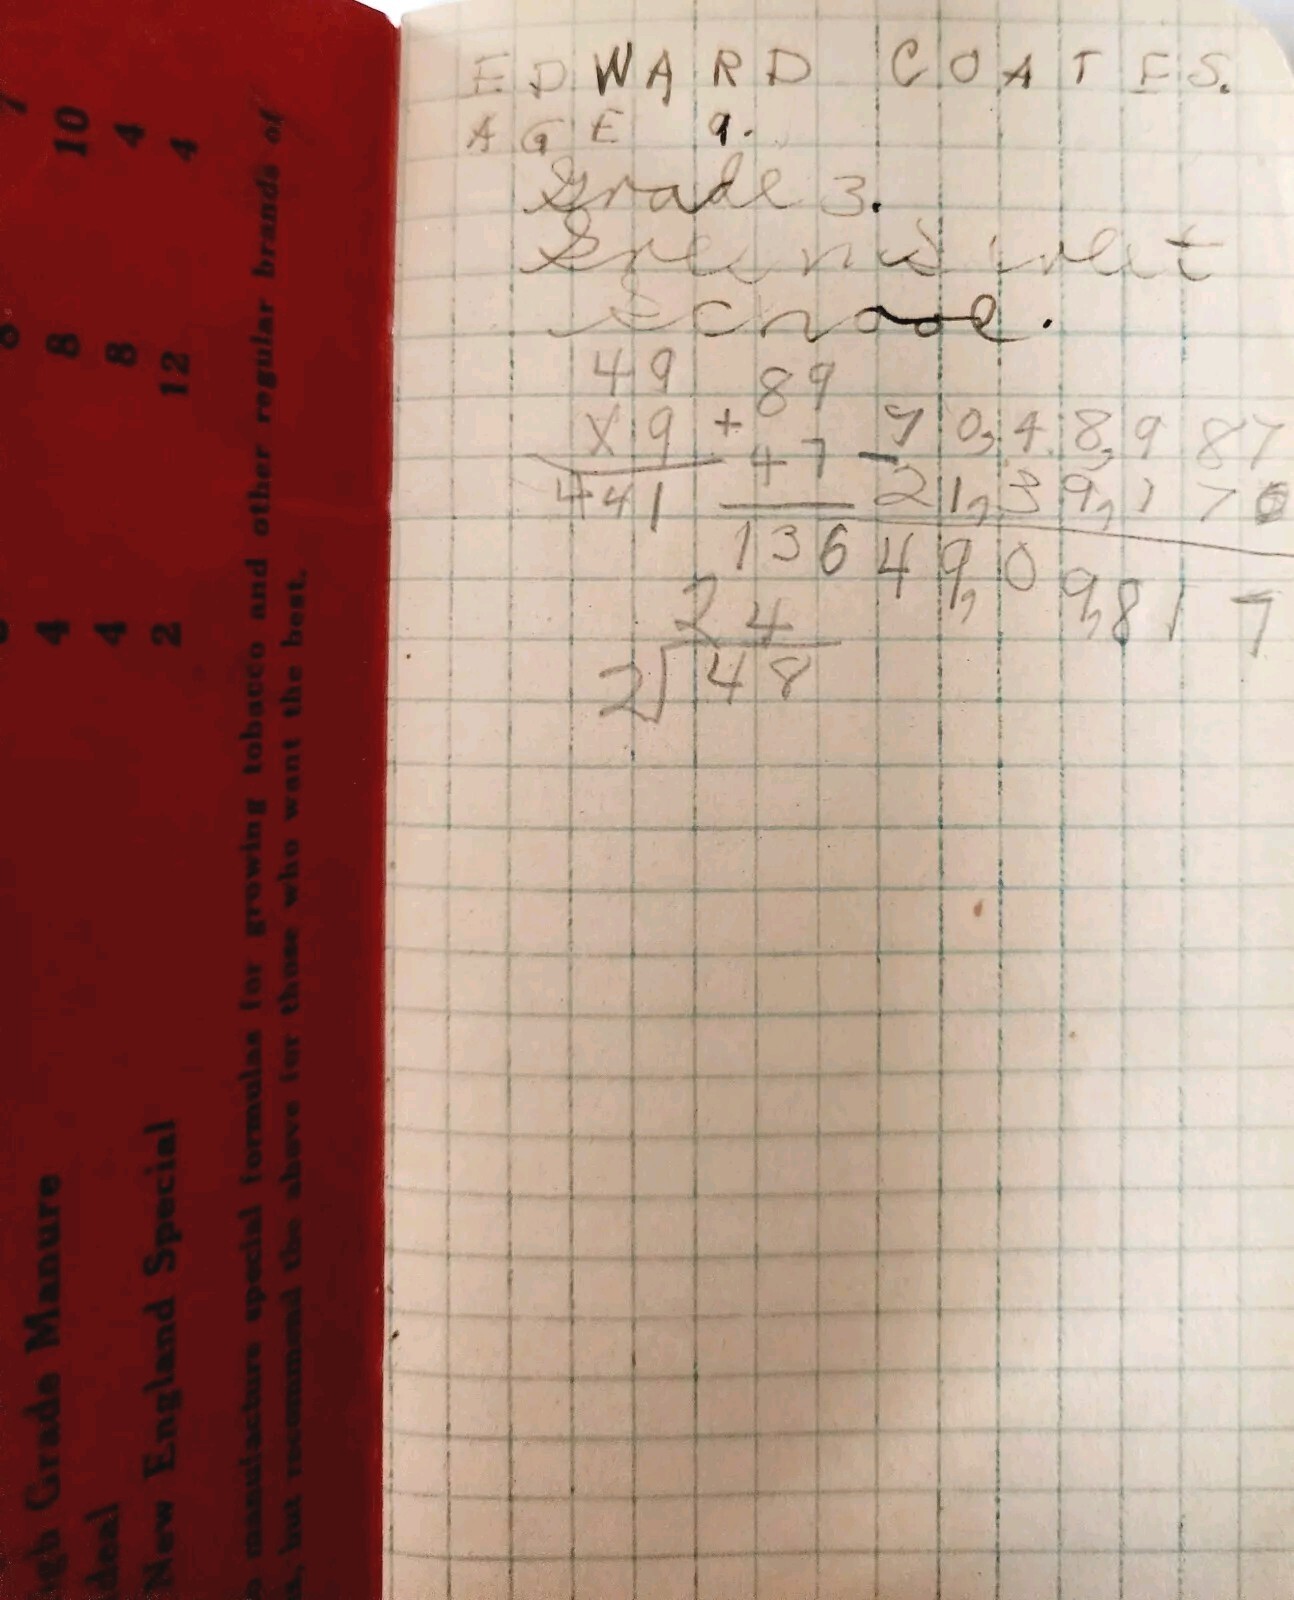 EDWARD COATES.
AGE 9.
Grade 3.
School.
49 89
X 9 + 47 - 70,48,987
441 21,39,170
136 49,09,817
24
2√48
7
10 4 4
8 8 8 12
4 4 2
gh Grade Manure
deal
New England Special
manufacture special formulas for growing tobacco and other regular brands of
s, but recommend the above for those who want the best.